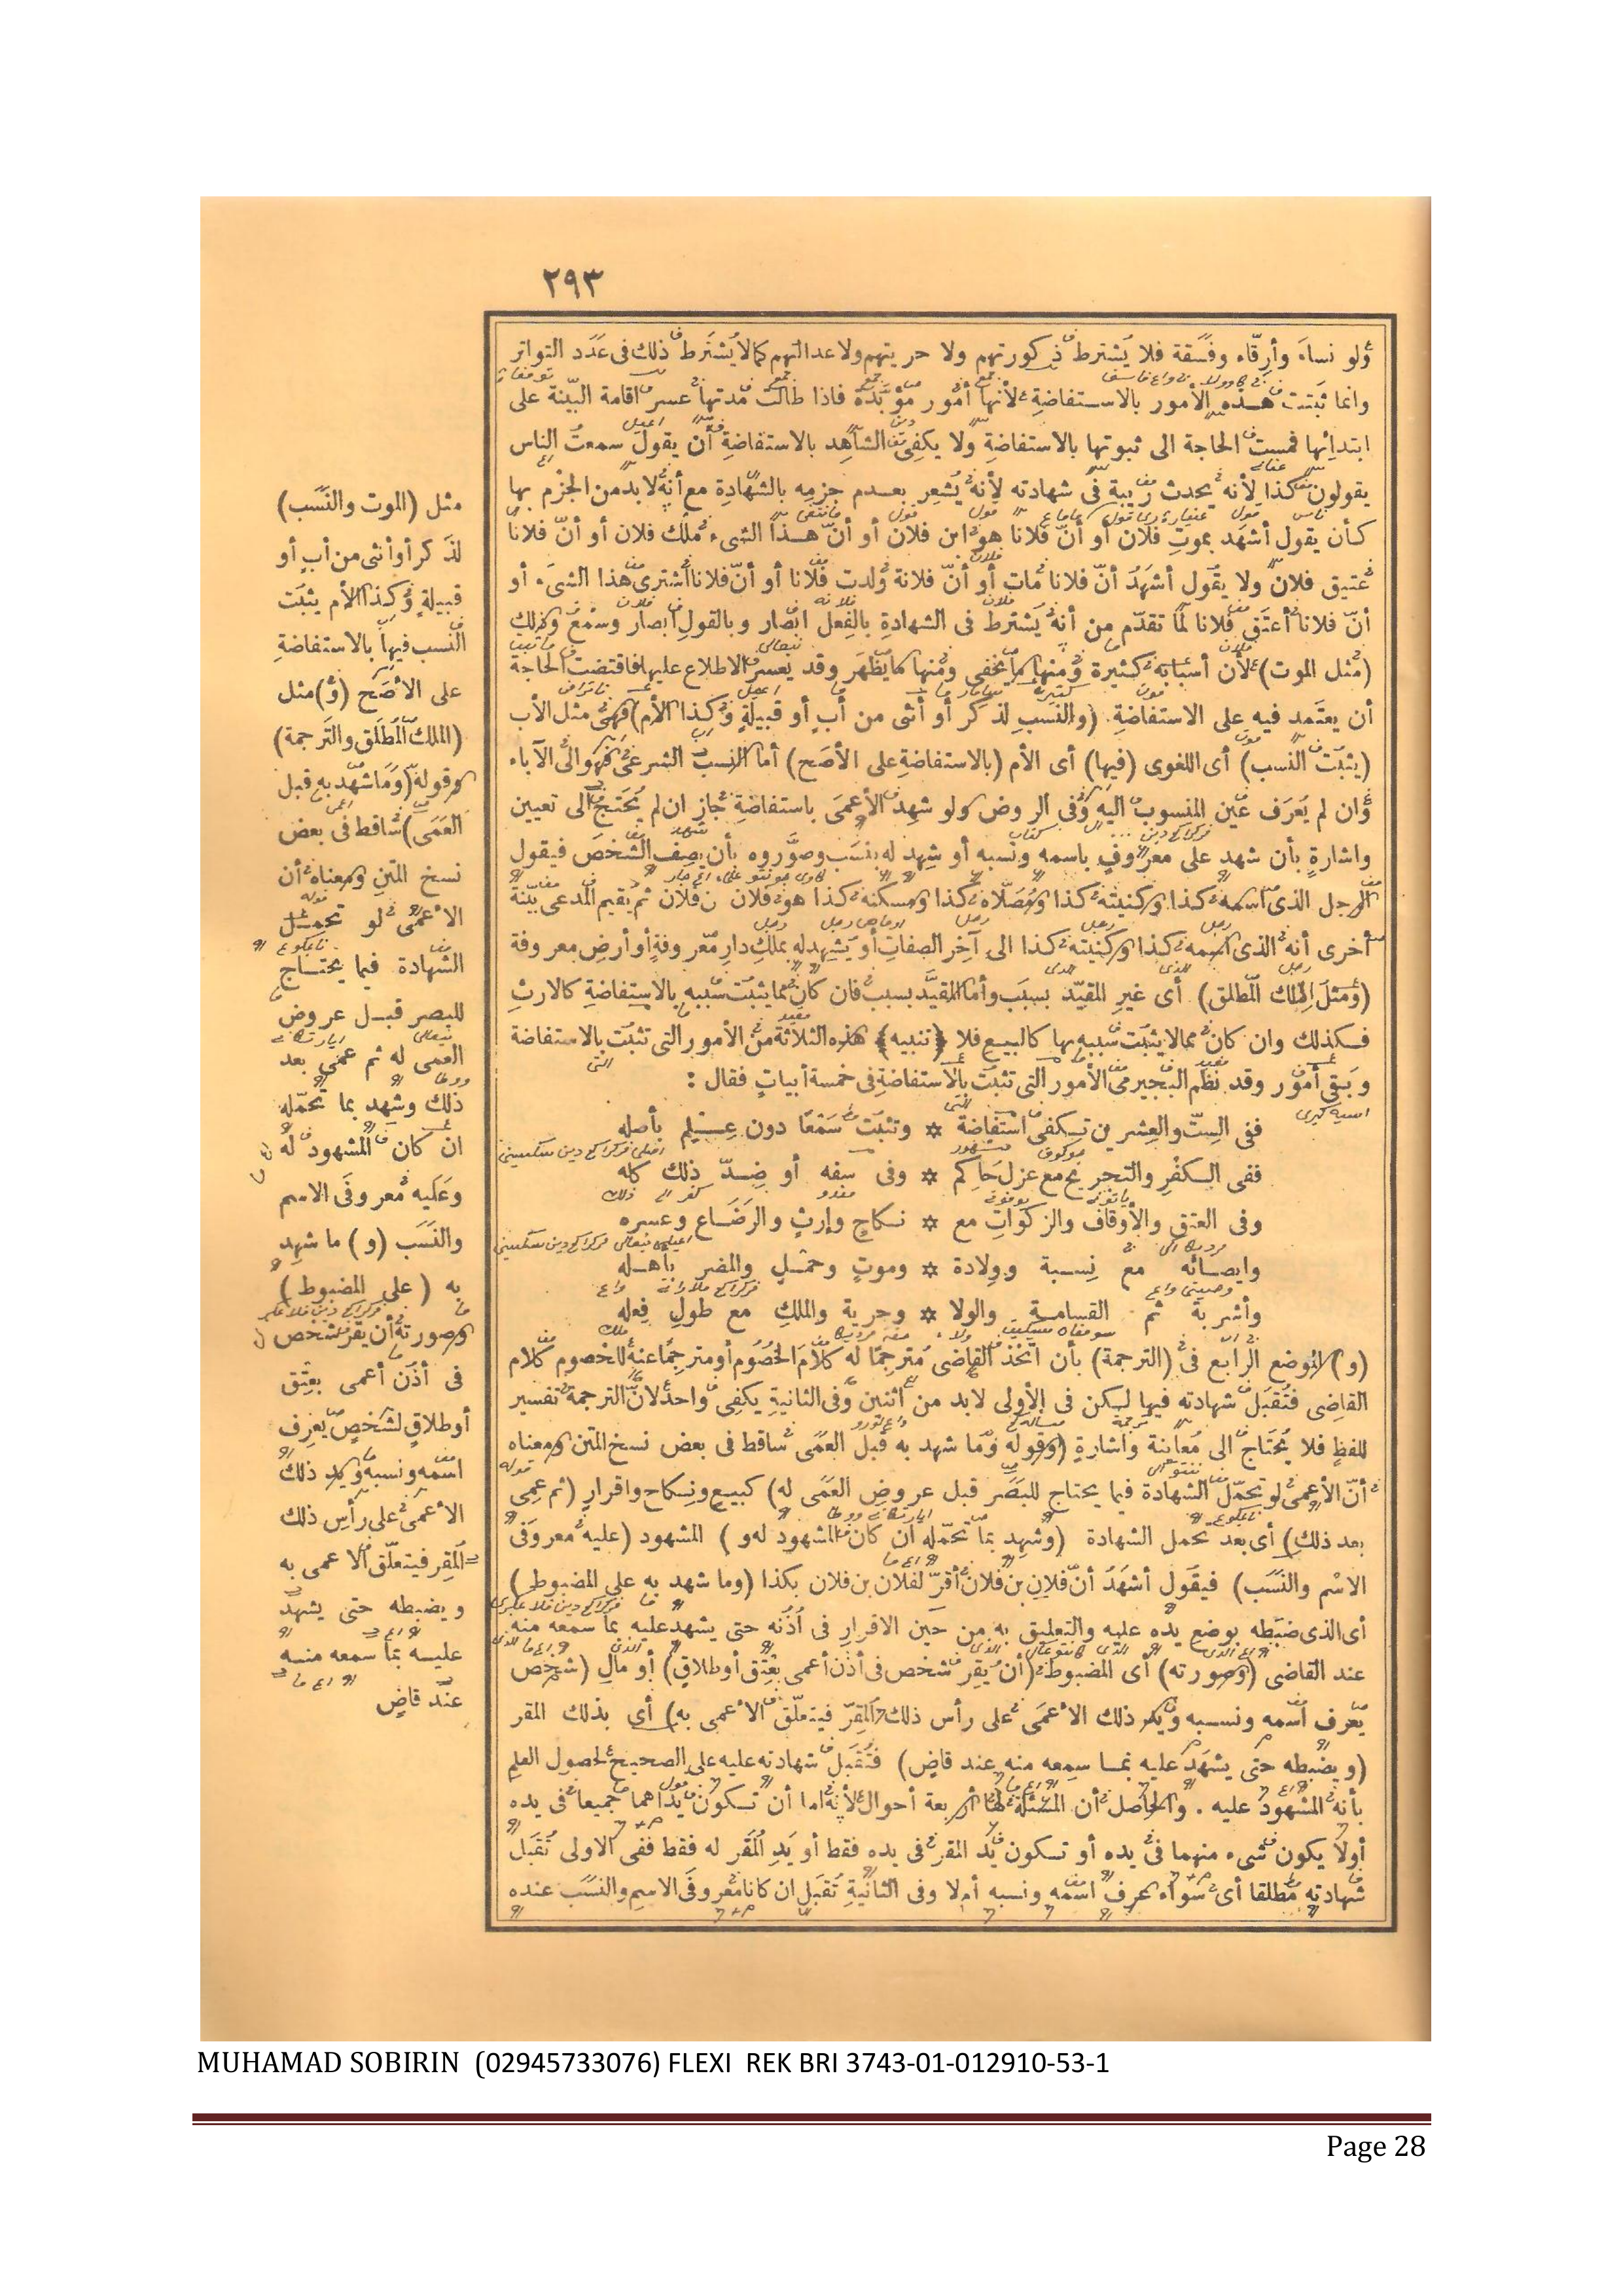 ٢٩٣
ولو نساء وأرقاء وفسقة فلا يشترط ذكورتهم ولا حريتهم ولا عدالتهم كما لا يشترط ذلك فى عدد التواتر
وانما ثبتت هذه الأمور بالاستفاضة لأنها أمور مؤبدة فاذا طالت مدتها عسر اقامة البينة على
ابتدائها فمست الحاجة الى ثبوتها بالاستفاضة ولا يكفى الشاهد بالاستفاضة أن يقول سمعت الناس
يقولون كذا لأنه يحدث ريبة فى شهادته لأنه يشعر بعدم جزمه بالشهادة مع أنه لا بد من الجزم بها
كأن يقول أشهد بموت فلان أو أن فلانا هو ابن فلان أو أن هذا الشىء ملك فلان أو أن فلانا
عتيق فلان ولا يقول أشهد أن فلانا مات أو أن فلانة ولدت فلانا أو أن فلانا اشترى هذا الشىء أو
أن فلانا أعتق فلانا لما تقدم من أنه يشترط فى الشهادة بالفعل ابصار وبالقول ابصار وسمع وذلك
(مثل الموت) لأن أسبابه كثيرة ومنها ما يخفى ومنها ما يظهر وقد يعسر الاطلاع عليها فاقتضت الحاجة
أن يعتمد فيه على الاستفاضة. (والنسب لذكر أو أنثى من أب أو قبيلة وكذا الأم) فهى مثل الأب
(يثبت النسب) أى اللغوى (فيها) أى الأم (بالاستفاضة على الأصح) أما النسب الشرعى فهو الى الآباء
وان لم يعرف عين المنسوب اليه وفى الروض ولو شهد الأعمى باستفاضة جاز ان لم يحتج الى تعيين
واشارة بأن شهد على معروف باسمه ونسبه أو شهد له بنسب وصوروه بأن يصف الشخص فيقول
الرجل الذى اسمه كذا وكنيته كذا ومصلاه كذا ومسكنه كذا هو فلان بن فلان ثم يقيم المدعى بينة
أخرى أنه الذى اسمه كذا وكنيته كذا الى آخر الصفات أو يشهد له بملك دار معروفة أو أرض معروفة
(ومثل الملك المطلق) أى غير المقيد بسبب وأما المقيد بسبب فان كان مما يثبت سببه بالاستفاضة كالارث
فكذلك وان كان مما لا يثبت سببه بها كالبيع فلا ﴿تنبيه﴾ هذه الثلاثة من الأمور التى تثبت بالاستفاضة
وبقى أمور وقد نظم البجيرمى الأمور التى تثبت بالاستفاضة فى خمسة أبيات فقال :
ففى الست والعشرين تكفى استفاضة ✡ وتثبت سمعا دون علم بأصله
ففى الكفر والتجريح مع عزل حاكم ✡ وفى سفه أو ضد ذلك كله
وفى العتق والأوقاف والزكوات مع ✡ نكاح وارث والرضاع وعسره
وايصائه مع نسبة وولادة ✡ وموت وحمل والمضر بأهله
وأشربة ثم القسامة والولا ✡ وحرية والملك مع طول فعله
(و) الموضع الرابع فى (الترجمة) بأن اتخذ القاضى مترجما له كلام الخصوم أو مترجما عنه للخصوم كلام
القاضى فتقبل شهادته فيها لكن فى الأولى لا بد من اثنين وفى الثانية يكفى واحد لأن الترجمة تفسير
للفظ فلا يحتاج الى معاينة واشارة (وقوله وما شهد به قبل العمى ساقط فى بعض نسخ المتن ومعناه
أن الأعمى لو تحمل الشهادة فيما يحتاج للبصر قبل عروض العمى له) كبيع ونكاح واقرار (ثم عمى
بعد ذلك) أى بعد تحمل الشهادة (وشهد بما تحمله ان كان المشهود له و) المشهود (عليه معروفى
الاسم والنسب) فيقول أشهد أن فلان بن فلان أقر لفلان بن فلان بكذا (وما شهد به على المضبوط)
أى الذى ضبطه بوضع يده عليه والتعليق به من حين الاقرار فى أذنه حتى يشهد عليه بما سمعه منه
عند القاضى (وصورته) أى المضبوط (أن يقر شخص فى أذن أعمى بعتق أو طلاق) أو مال (شخص
يعرف اسمه ونسبه ويد ذلك الأعمى على رأس ذلك المقر فيتعلق الأعمى به) أى بذلك المقر
(ويضبطه حتى يشهد عليه بما سمعه منه عند قاض) فتقبل شهادته عليه على الصحيح لحصول العلم
بأنه المشهود عليه . والحاصل أن المسئلة لها أربعة أحوال لأنه اما أن تكون يداهما جميعا فى يده
أو لا يكون شىء منهما فى يده أو تكون يد المقر فى يده فقط أو يد المقر له فقط ففى الأولى تقبل
شهادته مطلقا أى سواء عرف اسمه ونسبه أم لا وفى الثانية تقبل ان كانا معروفى الاسم والنسب عنده
مثل (الموت والنسب)
لذكر أو أنثى من أب أو
قبيلة وكذا الأم يثبت
النسب فيها بالاستفاضة
على الأصح (و) مثل
(الملك المطلق والترجمة)
وقوله (وما شهد به قبل
العمى) ساقط فى بعض
نسخ المتن ومعناه أن
الأعمى لو تحمل
الشهادة فيما يحتاج
للبصر قبل عروض
العمى له ثم عمى بعد
ذلك وشهد بما تحمله
ان كان المشهود له
وعليه معروفى الاسم
والنسب (و) ما شهد
به (على المضبوط)
وصورته أن يقر شخص
فى أذن أعمى بعتق
أو طلاق لشخص يعرف
اسمه ونسبه ويد ذلك
الأعمى على رأس ذلك
المقر فيتعلق الأعمى به
ويضبطه حتى يشهد
عليه بما سمعه منه
عند قاض
MUHAMAD SOBIRIN (02945733076) FLEXI REK BRI 3743-01-012910-53-1
Page 28